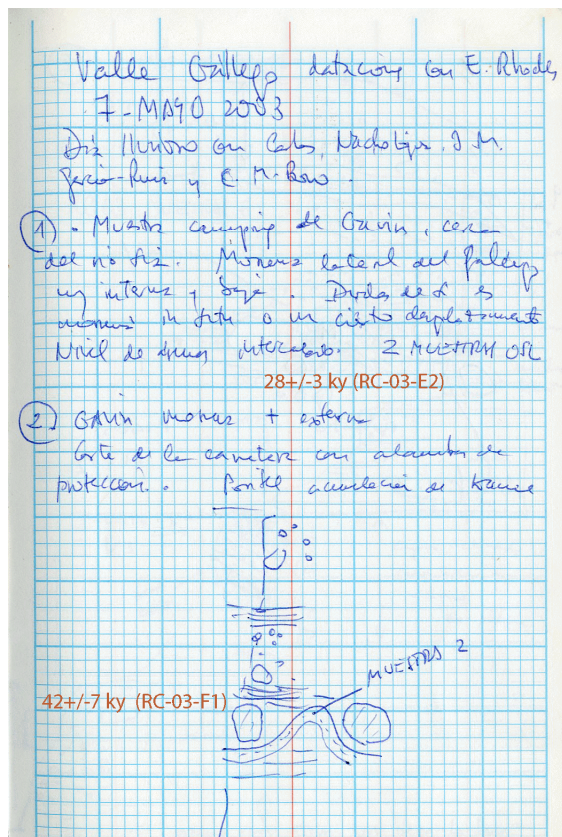 Valle Gállego datacions con E. Rhodes
7-MAYO 2003
Día lluvioso con Carlos, Nacho, J. M.
García-Ruiz y C. M.
1) - Muestra camping de Gavín, cerca
del río Morena lateral del Gállego
interna y baja. Dudas de si es
morrena in situ o un cierto desplazamiento
Nivel de arenas intercalado. 2 MUESTRAS OSL
28+/-3 ky (RC-03-E2)
2) GAVIN morrena + externa
Corte de la carretera con alambre de
protección. acumulación de
MUESTRA 2
42+/-7 ky (RC-03-F1)